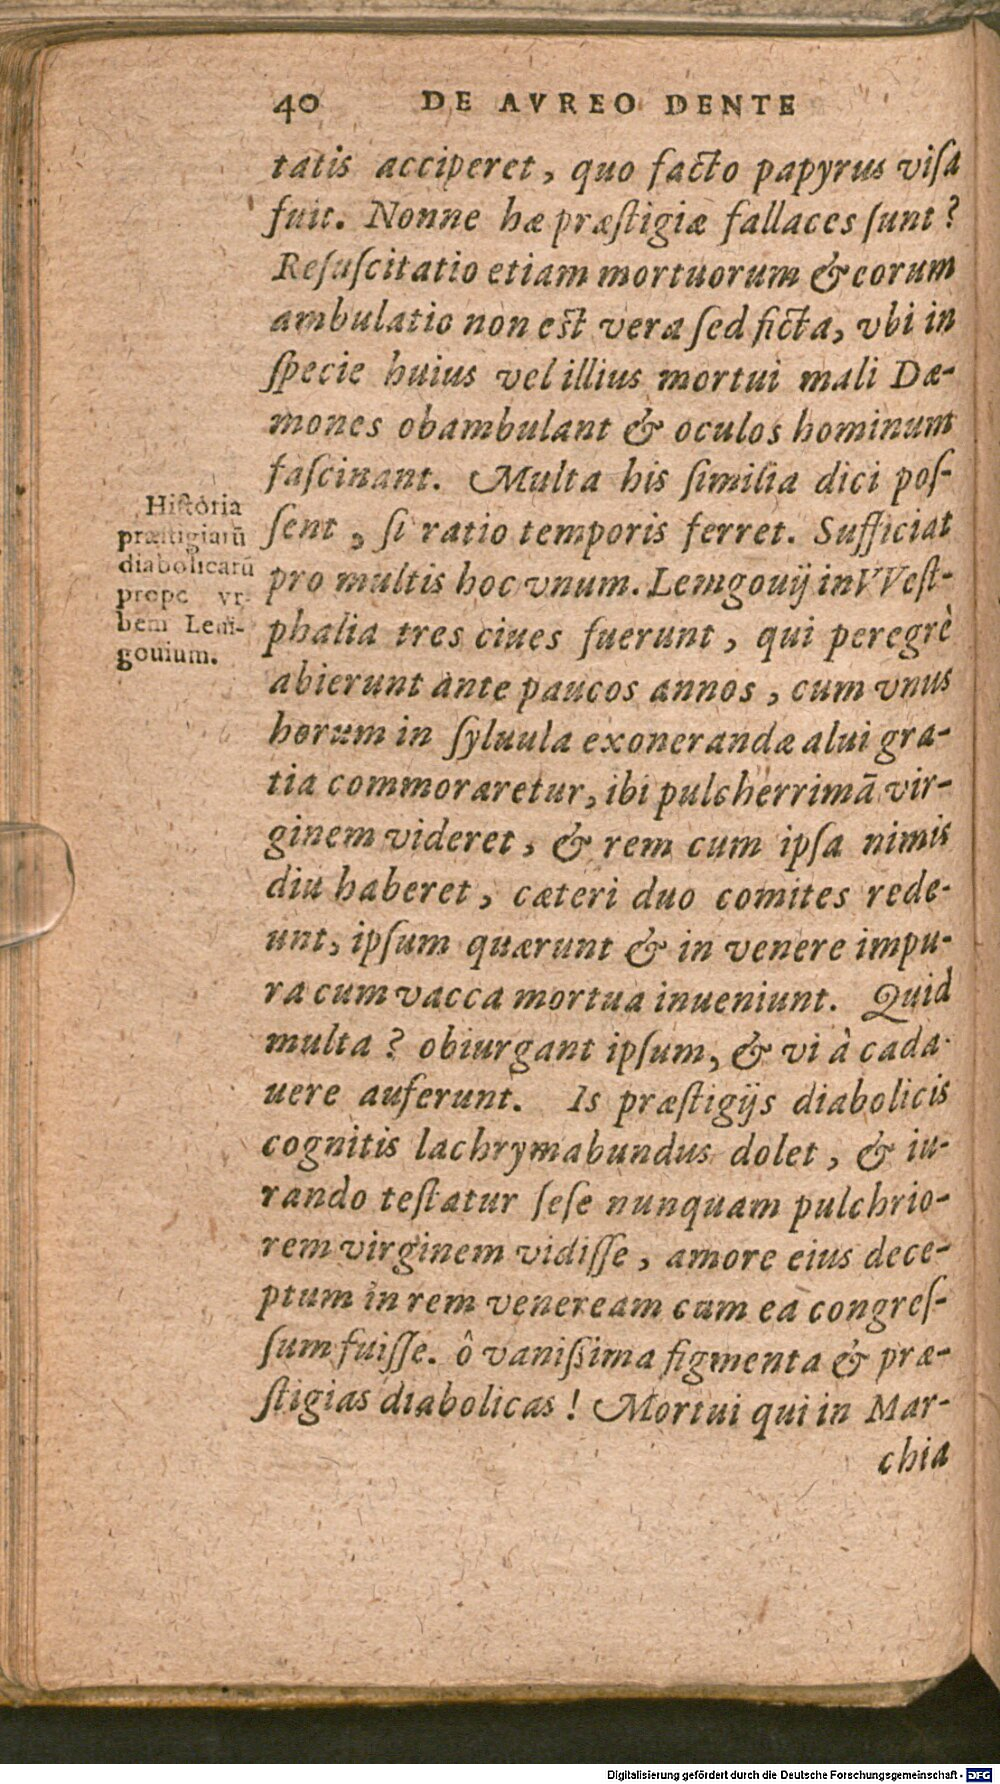 40 DE AVREO DENTE
tatis acciperet, quo facto papyrus viſa
fuit. Nonne hæ præſtigiæ fallaces ſunt?
Reſuſcitatio etiam mortuorum & eorum
ambulatio non est vera ſed ficta, vbi in
ſpecie huius vel illius mortui mali Dæ-
mones obambulant & oculos hominum
faſcinant. Multa his ſimilia dici poſ-
ſent, ſi ratio temporis ferret. Sufficiat
pro multis hoc vnum. Lemgouij in VVeſt-
phalia tres ciues fuerunt, qui peregrè
abierunt ante paucos annos, cum vnus
horum in ſyluula exonerandæ alui gra-
tia commoraretur, ibi pulcherrimā vir-
ginem videret, & rem cum ipſa nimis
diu haberet, cæteri duo comites rede-
unt, ipſum quærunt & in venere impu-
ra cum vacca mortua inueniunt. Quid
multa? obiurgant ipſum, & vi à cada-
uere auferunt. Is præſtigijs diabolicis
cognitis lachrymabundus dolet, & iu-
rando teſtatur ſeſe nunquam pulchrio-
rem virginem vidiſſe, amore eius dece-
ptum in rem veneream cum ea congreſ-
ſum fuiſſe. ô vaniſsima figmenta & præ-
ſtigias diabolicas! Mortui qui in Mar-
chia
Hiſtoria
præſtigiarū
diabolicarū
prope vr-
bem Lem-
gouium.
Digitalisierung gefördert durch die Deutsche Forschungsgemeinschaft - DFG